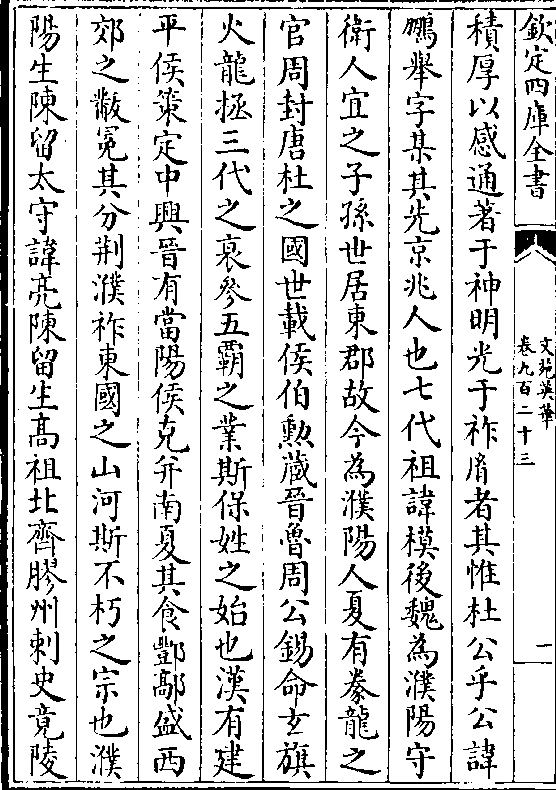 欽定四庫全書
文苑英華
卷九百二十三
一
積厚以感通著于神明光于祚胤者其惟杜公乎公諱
鵬舉字某其先京兆人也七代祖諱模後魏為濮陽守
衛人宜之子孫世居東郡故今為濮陽人夏有豢龍之
官周封唐杜之國世載侯伯勲藏晉魯周公錫命玄旗
火龍拯三代之衰參五霸之業斯保姓之始也漢有建
平侯策定中興晉有當陽侯克弁南夏其食酆鄗盛西
郊之黻冕其分荆濮祚東國之山河斯不朽之宗也濮
陽生陳留太守諱亮陳留生髙祖北齊膠州刺史竟陵